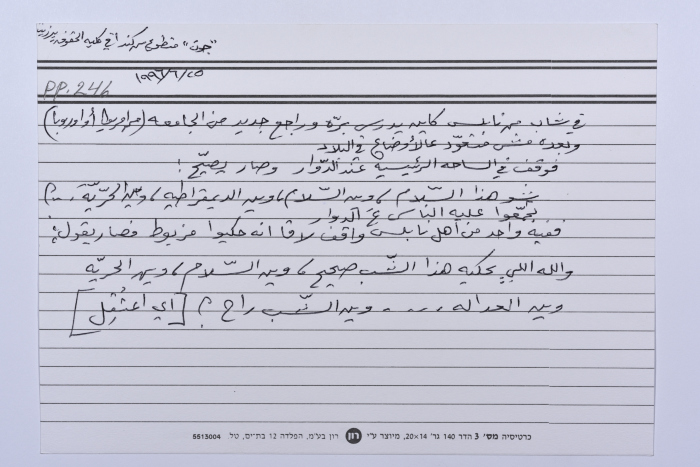 "جون" متطوع من كندا في كلية الحقوق بيرزيت
١٩٩٦/٦/٢٥
PP. 246
في شاب من نابلس كاين يدرس برّة وراجع جديد من الجامعه (من اوروبا أو اوروبا)
وبعده مش متعوّد عالأوضاع في البلاد
فوقف في الساحه الرئيسية عند الدّوار وصار يصيّح:
شو هذا السّلام، وين السّلام، وين الديمقراطيه، وين الحريّة..؟
تجمّعوا عليه الناس عَ الدوار
ففيه واحد من أهل نابلس واقف لاقا انه حكيوا مزبوط فصار يقول:
والله اللي بحكيه هذا الشّب صحيح، وين السّلام، وين الحريّه
وين العداله .... وين الشّب راح؟ [اي اعتُقِل]
כרטיסיה מס' 3 הדר 140 גר' 14×20, מיוצר ע"י רון רון בע"מ, הפלדה 12 בת-ים, טל. 5513004